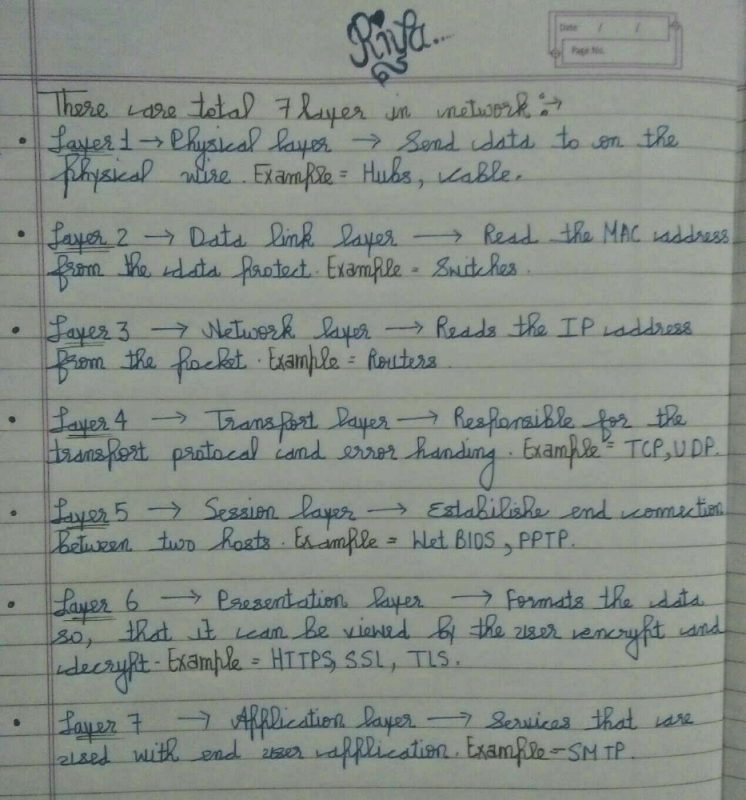 Riya...
Date / /
Page No.
There are total 7 layer in network :→
• Layer 1 → Physical layer → Send data to on the
physical wire. Example = Hubs, cable.
• Layer 2 → Data link layer → Read the MAC address
from the data protect. Example = Switches.
• Layer 3 → Network layer → Reads the IP address
from the packet. Example = Routers.
• Layer 4 → Transport layer → Responsible for the
transport protocal and error handing. Example = TCP, UDP.
• Layer 5 → Session layer → Estabilishe end connection
between two hosts. Example = Net BIOS, PPTP.
• Layer 6 → Presentation layer → Formats the data
so, that it can be viewed by the user encrypt and
decrypt. Example = HTTPS, SSL, TLS.
• Layer 7 → Application layer → Services that are
used with end user application. Example = SMTP.